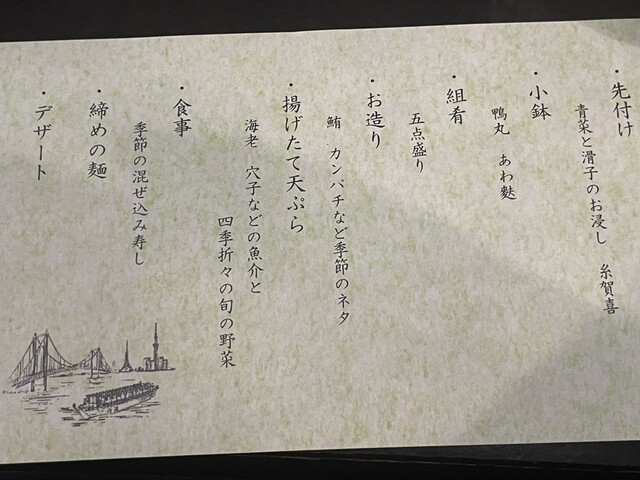 ・先付け
青菜と滑子のお浸し　糸賀喜
・小鉢
鴨丸　あわ麩
・組肴
五点盛り
・お造り
鮪　カンパチなど季節のネタ
・揚げたて天ぷら
海老　穴子などの魚介と
四季折々の旬の野菜
・食事
季節の混ぜ込み寿し
・締めの麺
・デザート